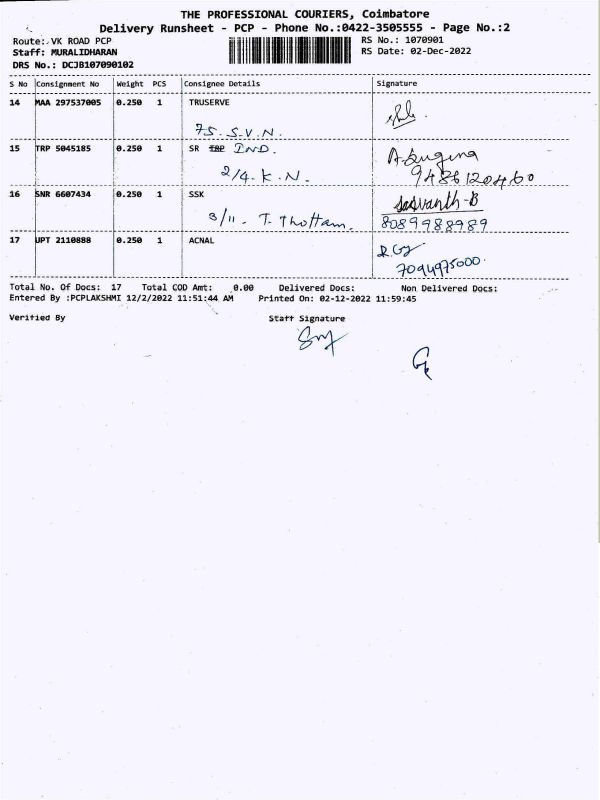 THE PROFESSIONAL COURIERS, Coimbatore
Delivery Runsheet - PCP - Phone No.:0422-3505555 - Page No.:2
Route: VK ROAD PCP RS No.: 1070901
Staff: MURALIDHARAN RS Date: 02-Dec-2022
DRS No.: DCJB107090102
S No Consignment No Weight PCS Consignee Details Signature
14 MAA 297537005 0.250 1 TRUSERVE
75. S.V.N.
15 TRP 5045185 0.250 1 SR IND.
2/4. K.N. 9486120460
16 SNR 6607434 0.250 1 SSK Sasvanth-B
3/11. T. Thottam. 8089988989
17 UPT 2110888 0.250 1 ACNAL
7094975000.
Total No. Of Docs: 17 Total COD Amt: 0.00 Delivered Docs: Non Delivered Docs:
Entered By :PCPLAKSHMI 12/2/2022 11:51:44 AM Printed On: 02-12-2022 11:59:45
Verified By Staff Signature